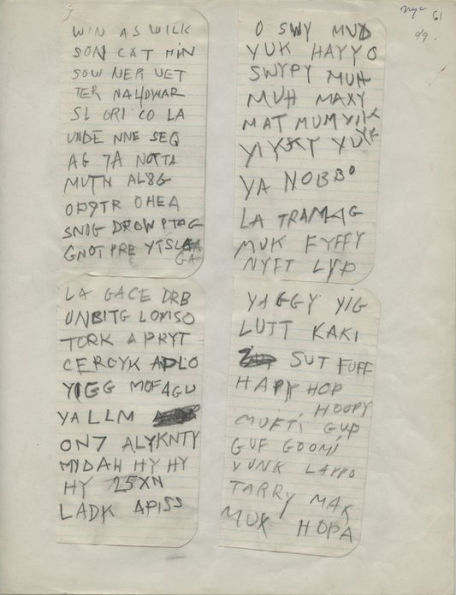 WIN AS WILK
SON CAT MIN
SOW NER VET
TER
SL ORI CO LA
UNDE NNE SEQ
AG 7A NOTTA
MUTH AL8G
OHEA
SNIG DROW PTAG
GNOT PRE
GA
LA GACE DRB
UNBITG LOMSO
TORK A PRYT
CERCYK ADLO
YIGG MOFAGU
YA LLM
ON7 ALYKNTY
MYDAH HY HY
HY 25XN
LADK APISS
nyc 61
O SWY MUD
YUK HAYYO
SWYPY MUH
MUH MAXY
MAT MUM
YA NOBBO
LA TRAMAG
MUK FYFFY
NYFT LYP
YAGGY YIG
LUTT KAKI
SUT FUFF
HAPY HOP
HOOPY
MUFTI GUP
GUF GOOMI
YUNK LAPPO
TARRY MAK
MUK HOPA